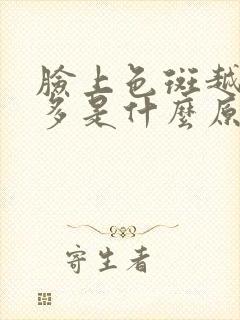 臉上色斑越
多是什麼原
寄生者